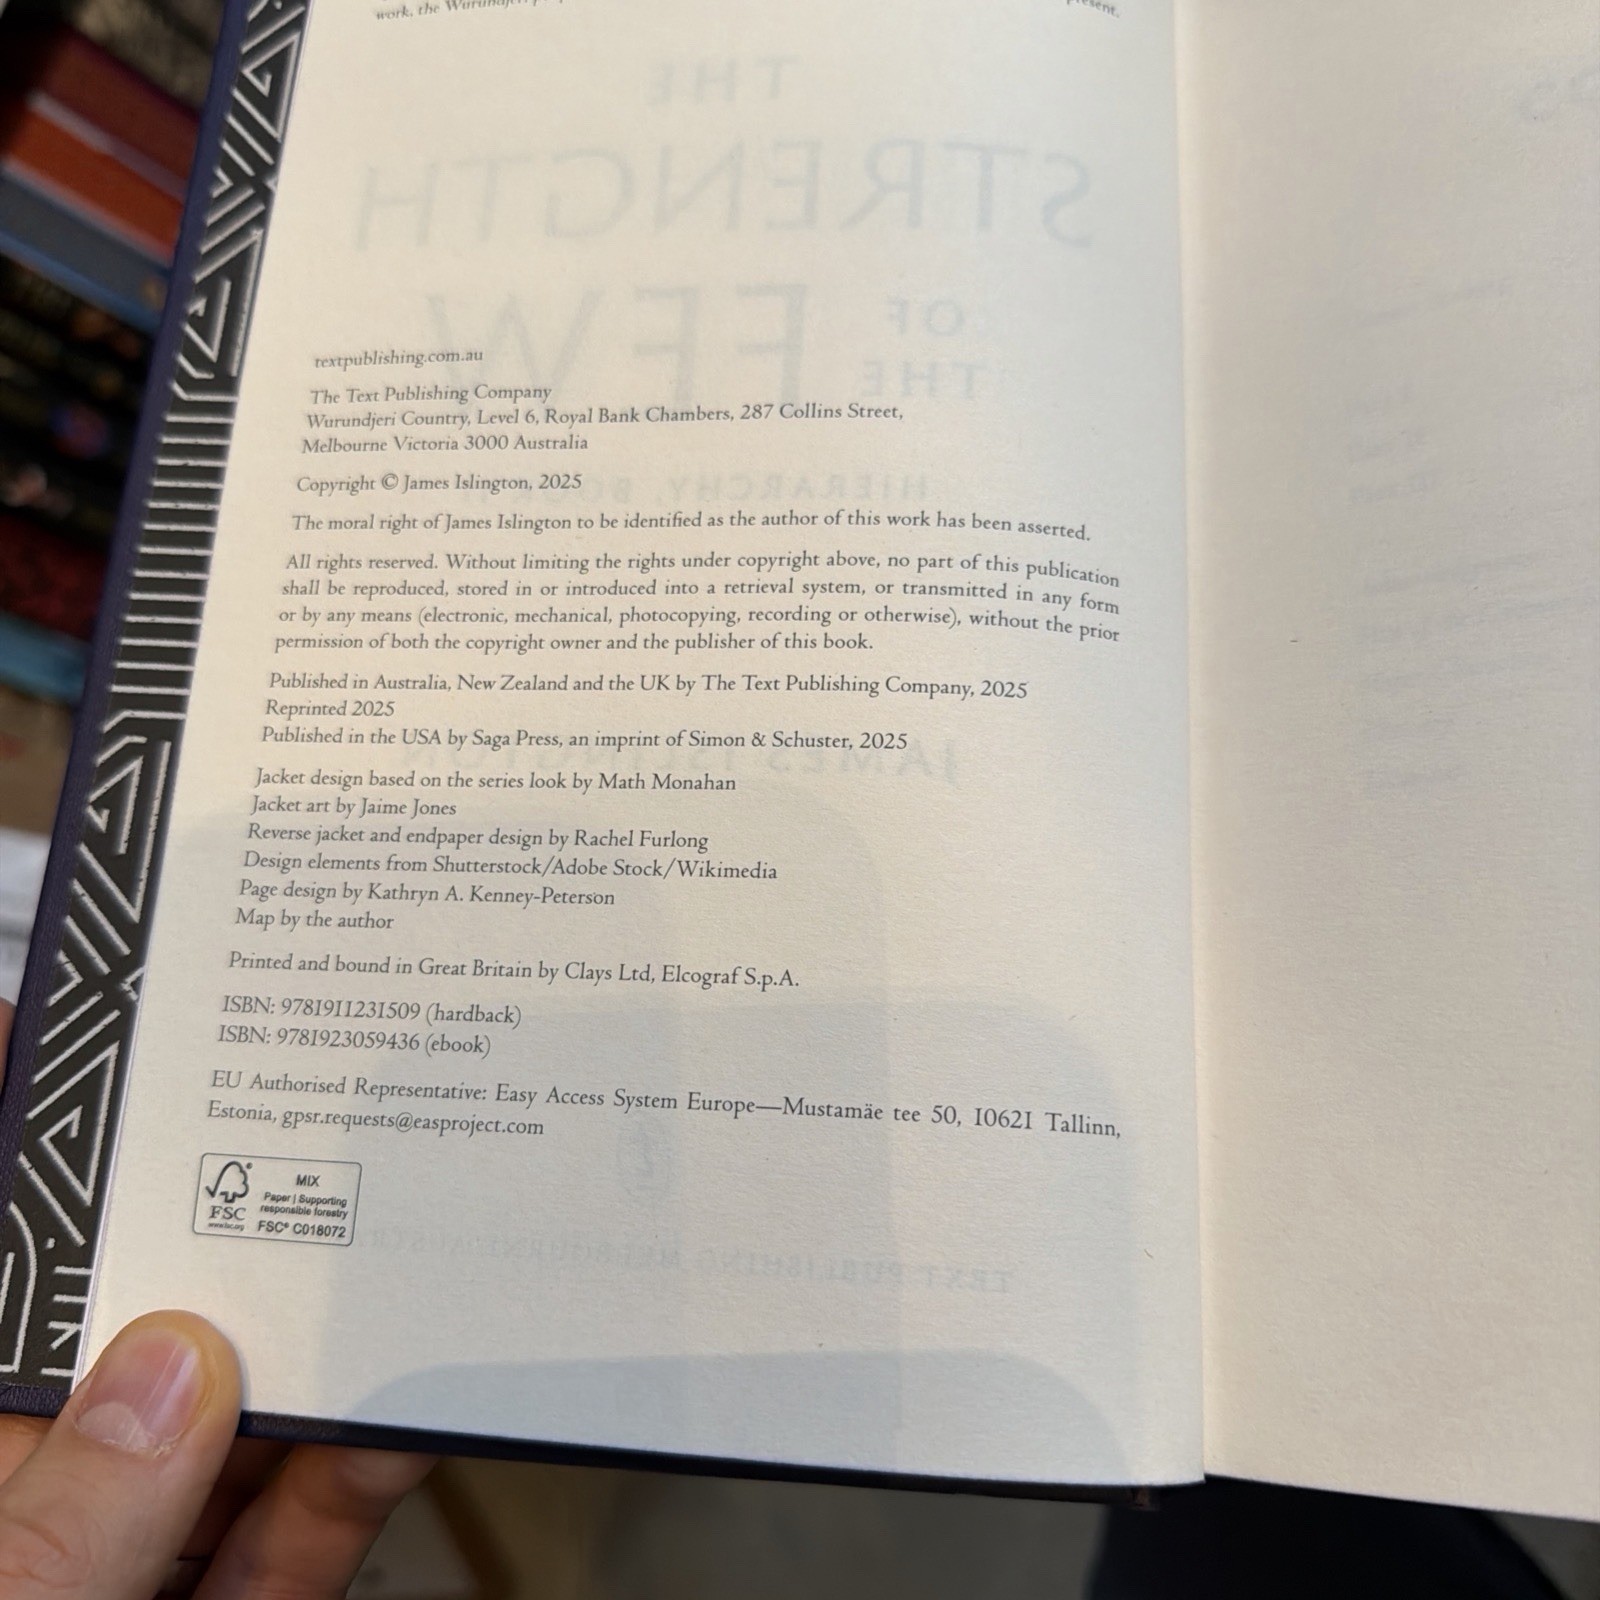 work, the Wurundjeri
present.
THE
STRENGTH
OF
THE
FEW
HIERARCHY,
textpublishing.com.au
The Text Publishing Company
Wurundjeri Country, Level 6, Royal Bank Chambers, 287 Collins Street,
Melbourne Victoria 3000 Australia
Copyright © James Islington, 2025
The moral right of James Islington to be identified as the author of this work has been asserted.
All rights reserved. Without limiting the rights under copyright above, no part of this publication
shall be reproduced, stored in or introduced into a retrieval system, or transmitted in any form
or by any means (electronic, mechanical, photocopying, recording or otherwise), without the prior
permission of both the copyright owner and the publisher of this book.
Published in Australia, New Zealand and the UK by The Text Publishing Company, 2025
Reprinted 2025
Published in the USA by Saga Press, an imprint of Simon & Schuster, 2025
JAMES ISLINGTON
Jacket design based on the series look by Math Monahan
Jacket art by Jaime Jones
Reverse jacket and endpaper design by Rachel Furlong
Design elements from Shutterstock/Adobe Stock/Wikimedia
Page design by Kathryn A. Kenney-Peterson
Map by the author
Printed and bound in Great Britain by Clays Ltd, Elcograf S.p.A.
ISBN: 9781911231509 (hardback)
ISBN: 9781923059436 (ebook)
EU Authorised Representative: Easy Access System Europe—Mustamäe tee 50, 10621 Tallinn,
Estonia, gpsr.requests@easproject.com
FSC
www.fsc.org
MIX
Paper | Supporting
responsible forestry
FSC® C018072
TEXT PUBLISHING MELBOURNE